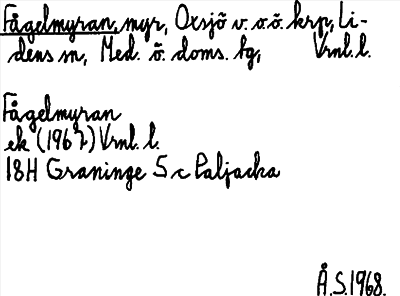 Fågelmyran, myr, Oxsjö v. o. ö. krp, Li-
dens sn, Med. ö. doms. hg, Vrnl. l.
Fågelmyran
ek (1967) Vrnl. l.
18H Graninge 5 c Paljacka
Å.S. 1968.